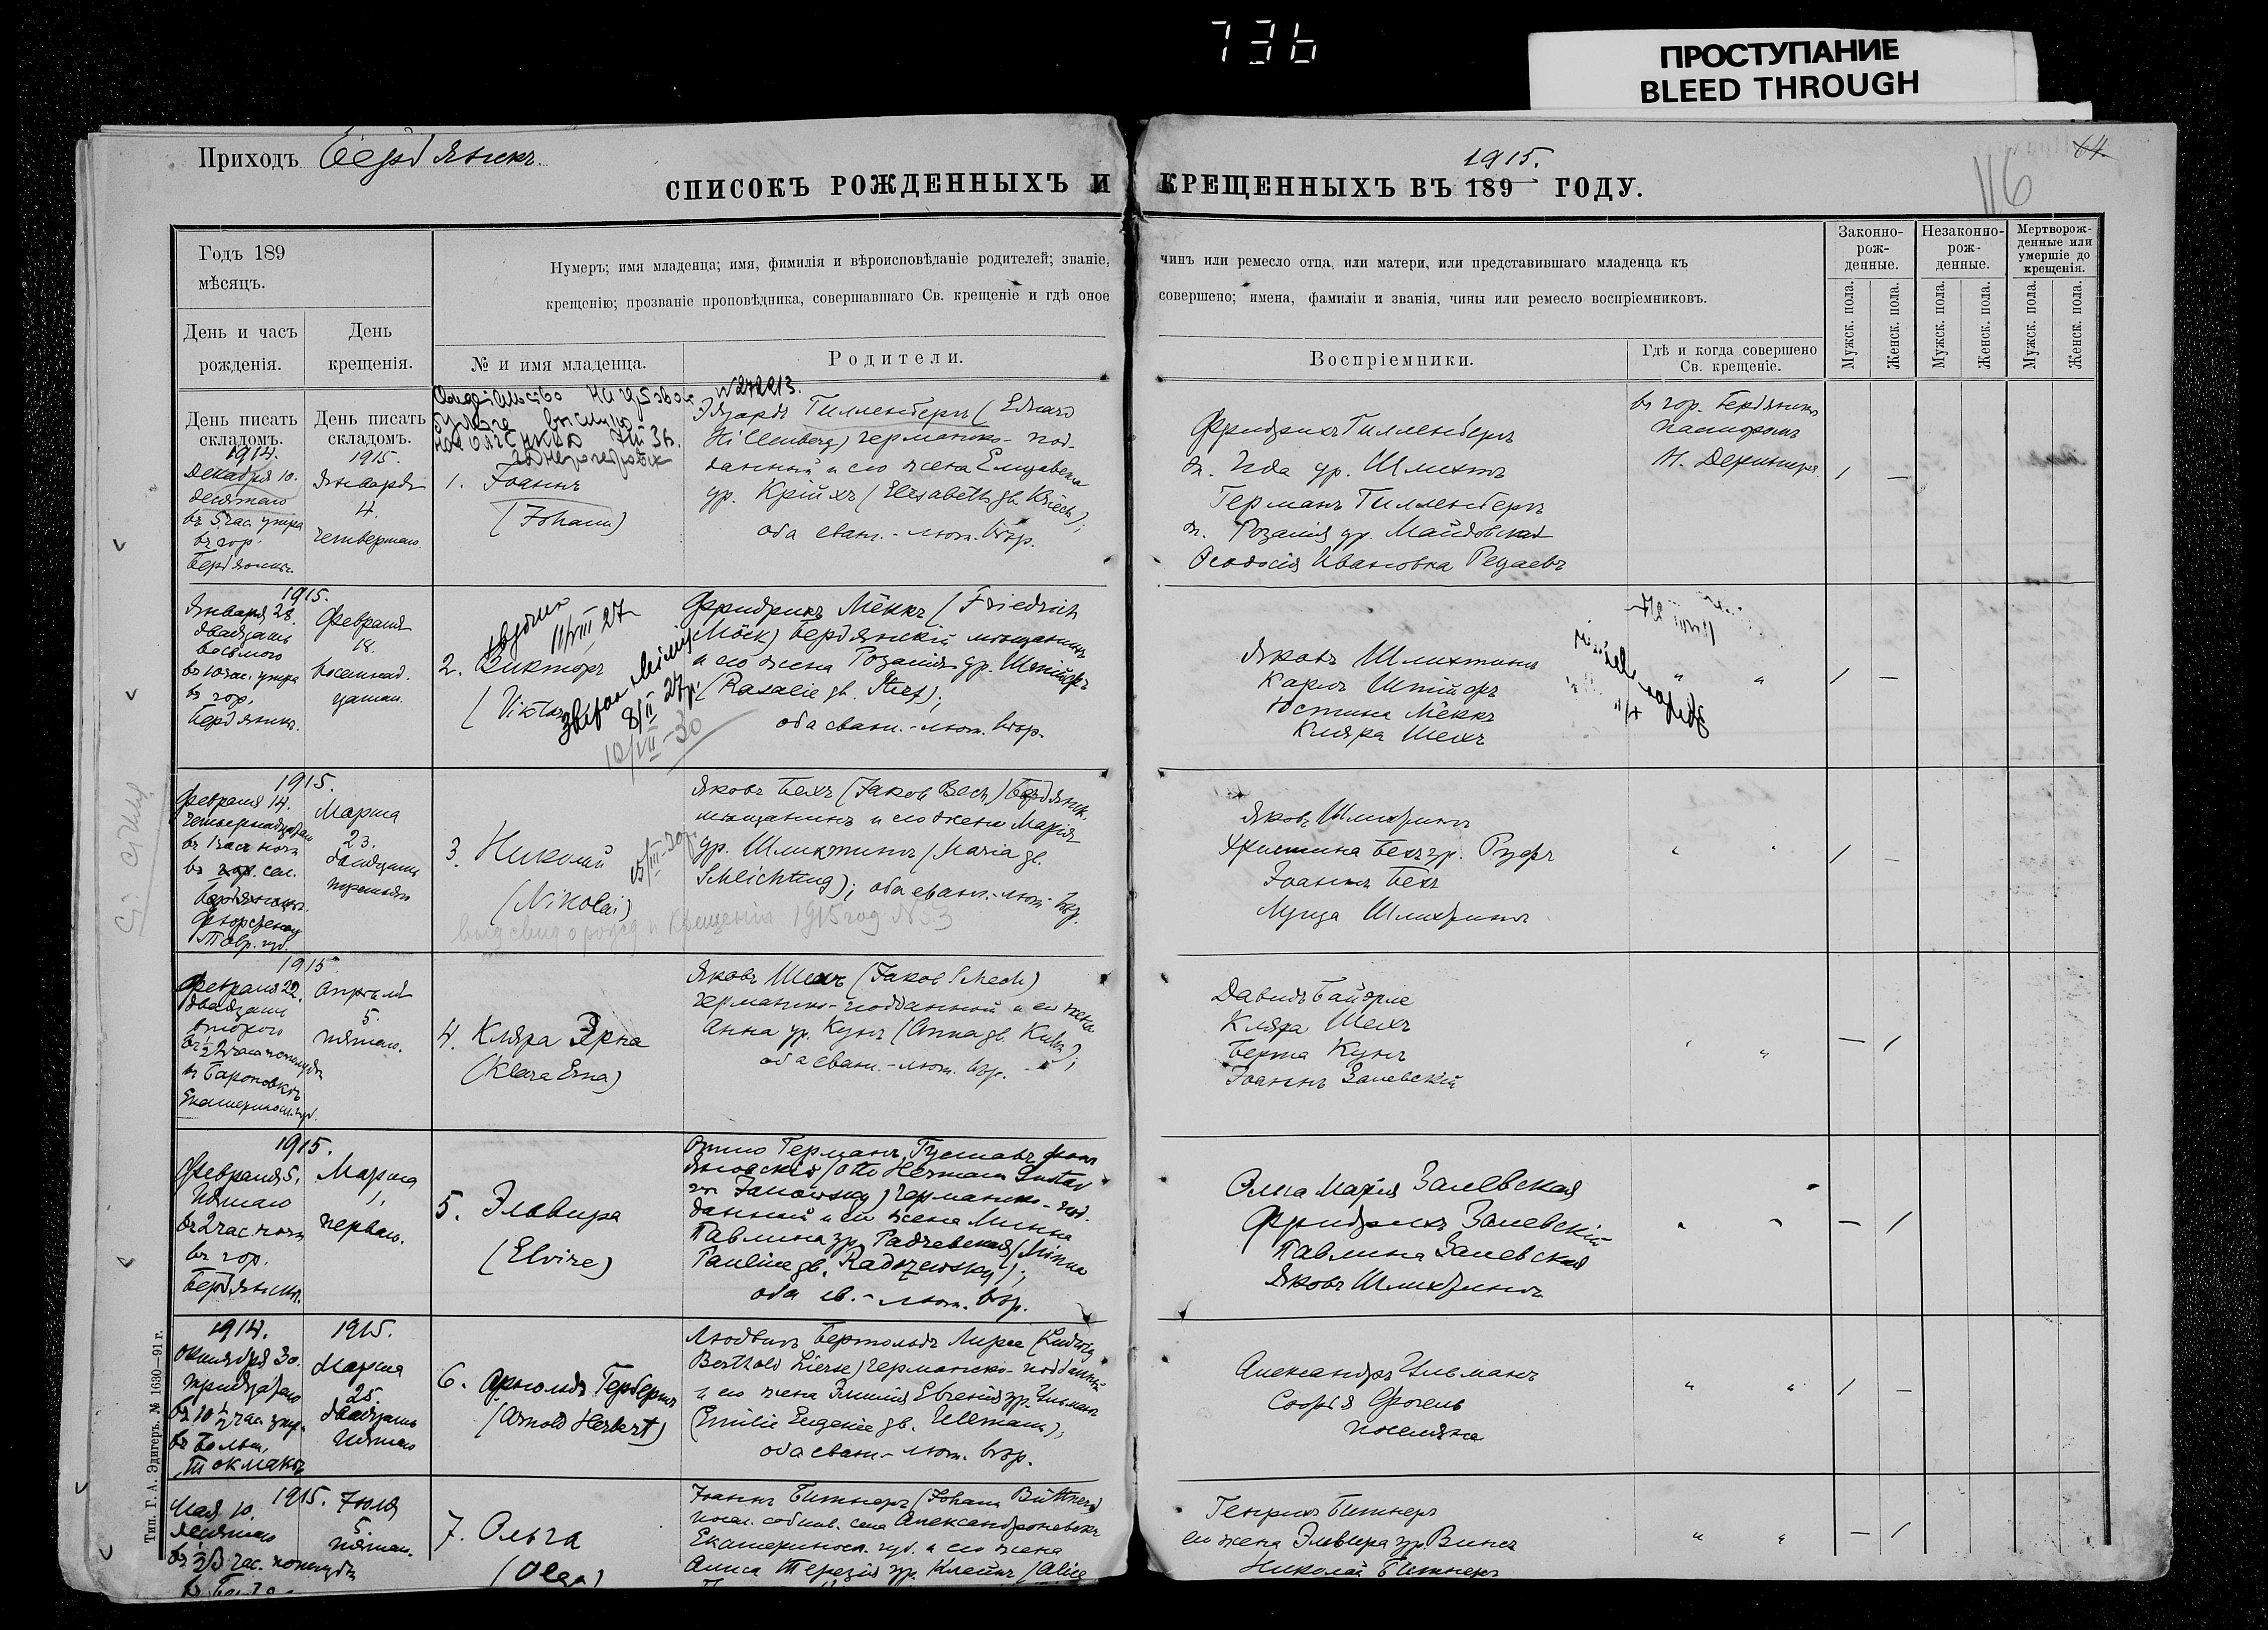 736
ПРОСТУПАНИЕ
BLEED THROUGH
Приходъ Бердянскъ.
1915.
64
116
СПИСОКЪ РОЖДЕННЫХЪ И КРЕЩЕННЫХЪ ВЪ 189 ГОДУ.
Годъ 189
мѣсяцъ.
Нумеръ; имя младенца; имя, фимилія и вѣроисповѣданіе родителей; званіе, чинъ или ремесло отца, или матери, или представившаго младенца къ
крещенію; прозваніе проповѣдника, совершавшаго Св. крещеніе и гдѣ оное совершено; имена, фамиліи и званія, чины или ремесло воспріемниковъ.
Законно-
рож-
денные.
Незаконно-
рож-
денные.
Мертворож-
денные или
умершіе до
крещенія.
Мужск. пола.
Женск. пола.
Мужск. пола.
Женск. пола.
Мужск. пола.
Женск. пола.
День и часъ
рожденія.
День
крещенія.
№ и имя младенца.
Родители.
Воспріемники.
Гдѣ и когда совершено
Св. крещеніе.
День писать
складомъ.
1914.
Декабря 10.
десятаго
въ 5 час. утра
въ гор.
Бердянскъ.
День писать
складомъ.
1915.
Января
4.
четвертаго.
1. Іоаннъ
(Johann)
Эдуардъ Гилленбергъ (Eduard
Hillenberg) германско-под-
данный и его жена Елизавета
ур. Крійхъ (Elisabeth gb. Kriech);
оба еванг.-лют. вѣр.
Фридрихъ Гилленбергъ
Ида ур. Шлихтъ
Германъ Гилленбергъ
Розалія ур. Майовская
Ѳеодосія Ивановна Редаевъ
въ гор. Бердянскъ
пасторомъ
1 —
1915.
Января 28.
двадцать
восьмого
въ 10 час. утра
въ гор.
Бердянскъ.
Февраля
18.
восемнад-
цатаго.
2. Викторъ
(Viktor)
11/VIII 27
8/II 27 г.
10/VII - 30
Фридрихъ Мёккъ (Friedrich
Möck) Бердянскій мѣщанинъ
и его жена Розалія ур. Штійфъ
(Rosalie gb. Stief);
оба еванг.-лют. вѣр.
Яковъ Шлихтингъ
Карлъ Штійфъ
Юстина Мёккъ
Клара Шехъ
" "
1 —
1915.
Февраля 14.
четырнадцатаго
въ 1 часъ ночи
въ гор. сел.
Бердянскъ.
Тавр. губ.
Марта
23.
двадцать
третьяго
3. Николай
(Nikolai)
Яковъ Бехъ (Jakob Bech) Бердянск.
мѣщанинъ и его жена Марія
ур. Шлихтингъ (Maria gb.
Schlichting); оба еванг.-лют. вѣр.
выд свид о рожд и крещеніи 1915 год №53
Яковъ Шлихтингъ
Христина Бехъ ур. Руфъ
Іоаннъ Бехъ
Луиза Шлихтингъ
" "
1 —
1915.
Февраля 22.
двадцать
второго
въ Бароновкѣ
Екатеринос. губ.
Апрѣля
5.
пятаго.
4. Клара Эрна
(Klara Erna)
Яковъ Шехъ (Jakob Schech)
германско-подданный и его жена
Анна ур. Кунъ (Anna gb. Kuhn);
оба еванг.-лют. вѣр.
Давидъ Байерле
Клара Шехъ
Берта Кунъ
Іоаннъ Залевскій
" "
— 1
1915.
Февраля 5.
пятаго
въ 2 час. ночи
въ гор.
Бердянскъ.
Марта
1.
перваго.
5. Эльвира
(Elvire)
Отто Германъ Густавъ фонъ
Яновскій (Otto Herman Gustav
von Janowsky) германско-под-
данный и его жена Минна
Павлина ур. Радчевская (Minna
Pauline gb. Radszewsky);
оба ев.-лют. вѣр.
Ольга Марія Залевская
Фридрихъ Залевскій
Павлина Залевская
Яковъ Шлихтингъ
" "
— 1
1914.
Октября 30.
тридцатаго
въ 10 ½ час. утра
въ Больш.
Токмакѣ
1915.
Марта
25.
двадцать
пятаго
6. Арнольдъ Гербертъ
(Arnold Herbert)
Людвигъ Бертольдъ Лирсе (Ludwig
Berthold Lierse) германско-подданный
и его жена Эмилія Евгенія ур. Ульманъ
(Emilie Eugenie gb. Ullmann);
оба еванг.-лют. вѣр.
Александръ Ульманъ
Софія Фогель
поселянка
" "
1 —
1915.
Мая 10.
десятаго
въ ½3 час. пополудн.
Іюля
5.
пятаго.
7. Ольга
(Olga)
Іоаннъ Битнеръ (Johann Büttner)
посел. собств. села Александроневскъ
Екатеринос. губ. и его жена
Алиса Терезія ур. Клейнъ (Alice
Генрихъ Битнеръ
его жена Эльвира ур. Винсъ
Николай Битнеръ
" "
— 1
Тип. Г. А. Эдигеръ. № 1630—91 г.